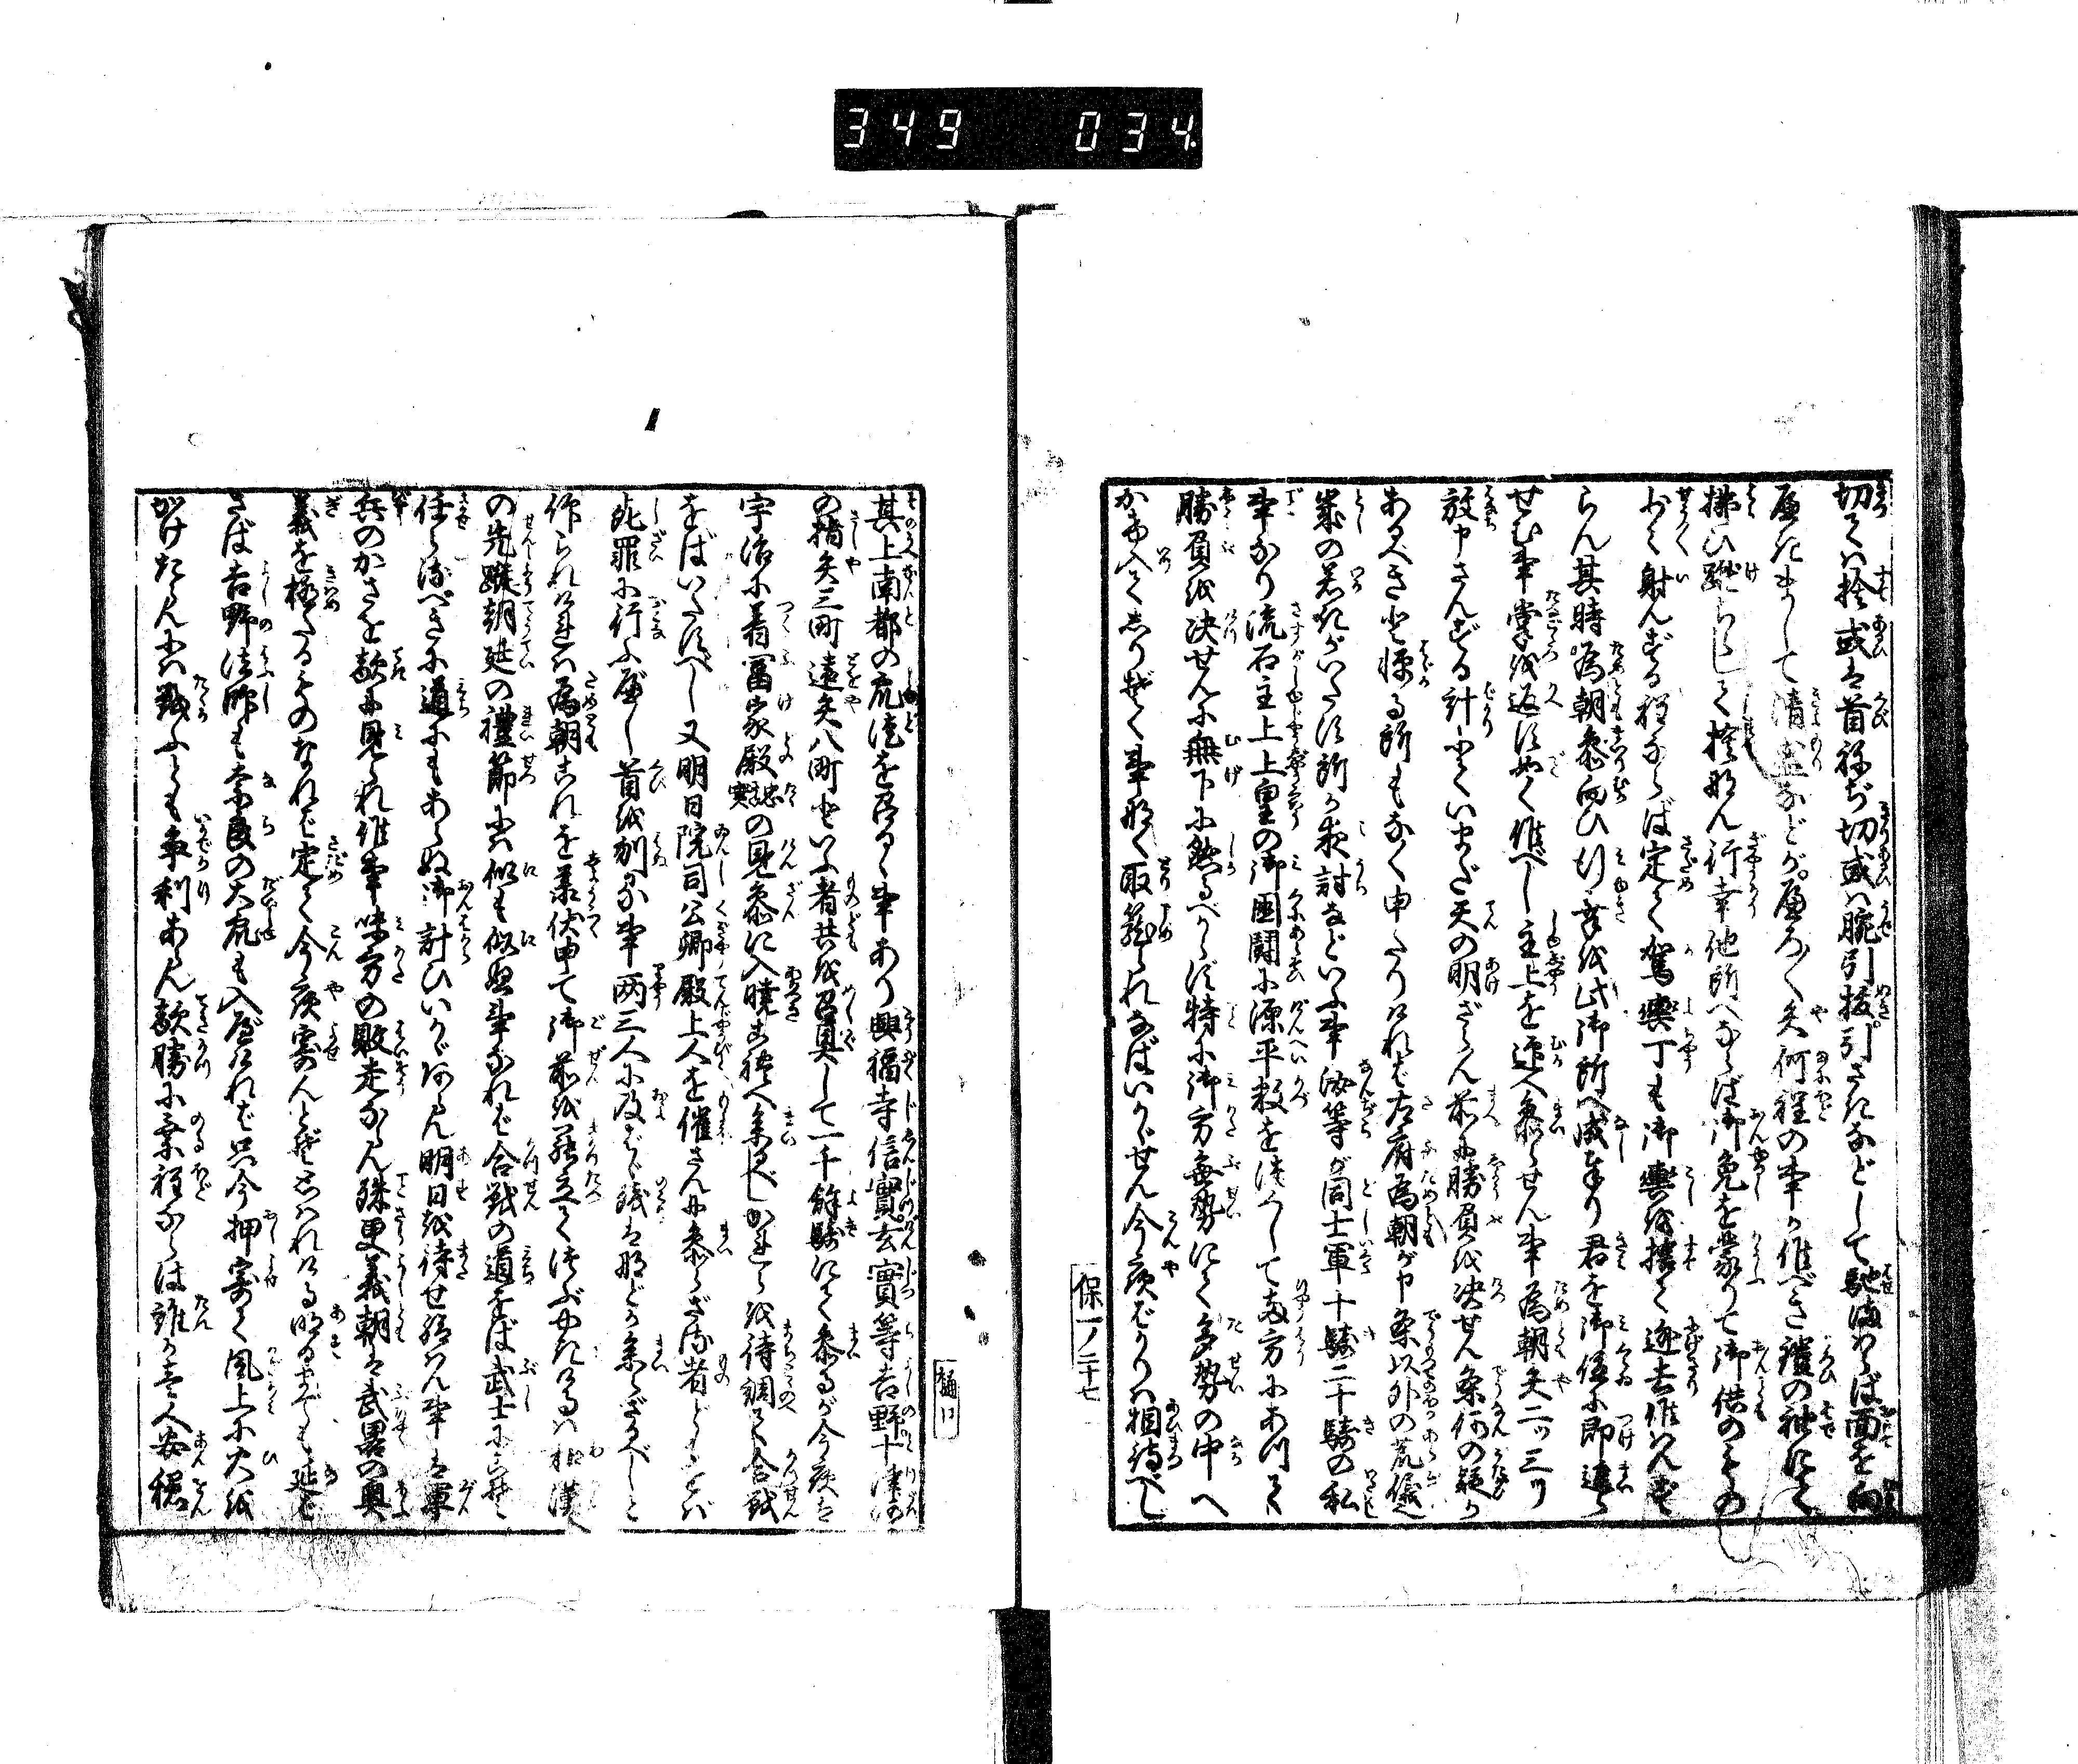 349 034
切ては捨或は首ねぢ切或は腕引抜引さきなどして馳まはらば面を向
拂ひ蹴ちらして捨なん行幸他所へならば御免を蒙りて御供のもの
少々射んずる程ならば定て駕輿丁も御輿を捨て逃去候はんず
らん其時為朝参向ひ行幸を此御所へ成奉り君を御位に即進ら
せむ事掌を返すごく候べし主上を迎へ参らせん事為朝矢二ッ三ッ
放申さんずる計にていまだ天の明ざらん前に勝負を決せん条何の疑か
あるべきと憚る所もなく申たりければ左府為朝が申条以外の荒儀也
歳の若きがいたす所か夜討などいふ事汝等が同士軍十騎二十騎の私
事なり流石主上上皇の御国闘に源平数を尽くして両方にあつて
勝負を決せんに無下に然るべからず特に御方無勢にて多勢の中へ
かけ入てしりぞく事なく取籠られなばいかゞせん今夜ばかりは相待べし
保一ノ二十七
樋口
其上南都の衆徒を召るゝ事あり興福寺信實玄實等吉野十津川
の指矢三町遠矢八町といふ者共を召具して一千餘騎にて参るが今夜は
宇治に着富家殿忠實の見参に入暁こゝへ参るべしかれらを待調て合戦
をばいたすべし又明日院司公卿殿上人を催さんに参らざる者どもをば
死罪に行ふべし首を刎る事両三人に及ばゞ残はなどか参らざるべしと
仰られければ為朝これを承伏申て御前を罷立てつぶやきけるは和漢
の先蹤朝廷の禮節には似も似ぬ事なれば合戦の道をば武士にこそ
任らるべきに道にもあらぬ御計ひいかゞあらん明日を待せ給はん事は軍
兵のかさを敵に見られ候事味方の敗走ならん殊更義朝は武畧の奥
義を極たるものなれば定て今夜寄んとぞ思はれける明日までも延ば
さば吉野法師も奈良の大衆も入べけれど只今押寄て風上に火を
がけたらんには戦ふとも争利あらん敵勝に乗程ならば誰か壱人安穏